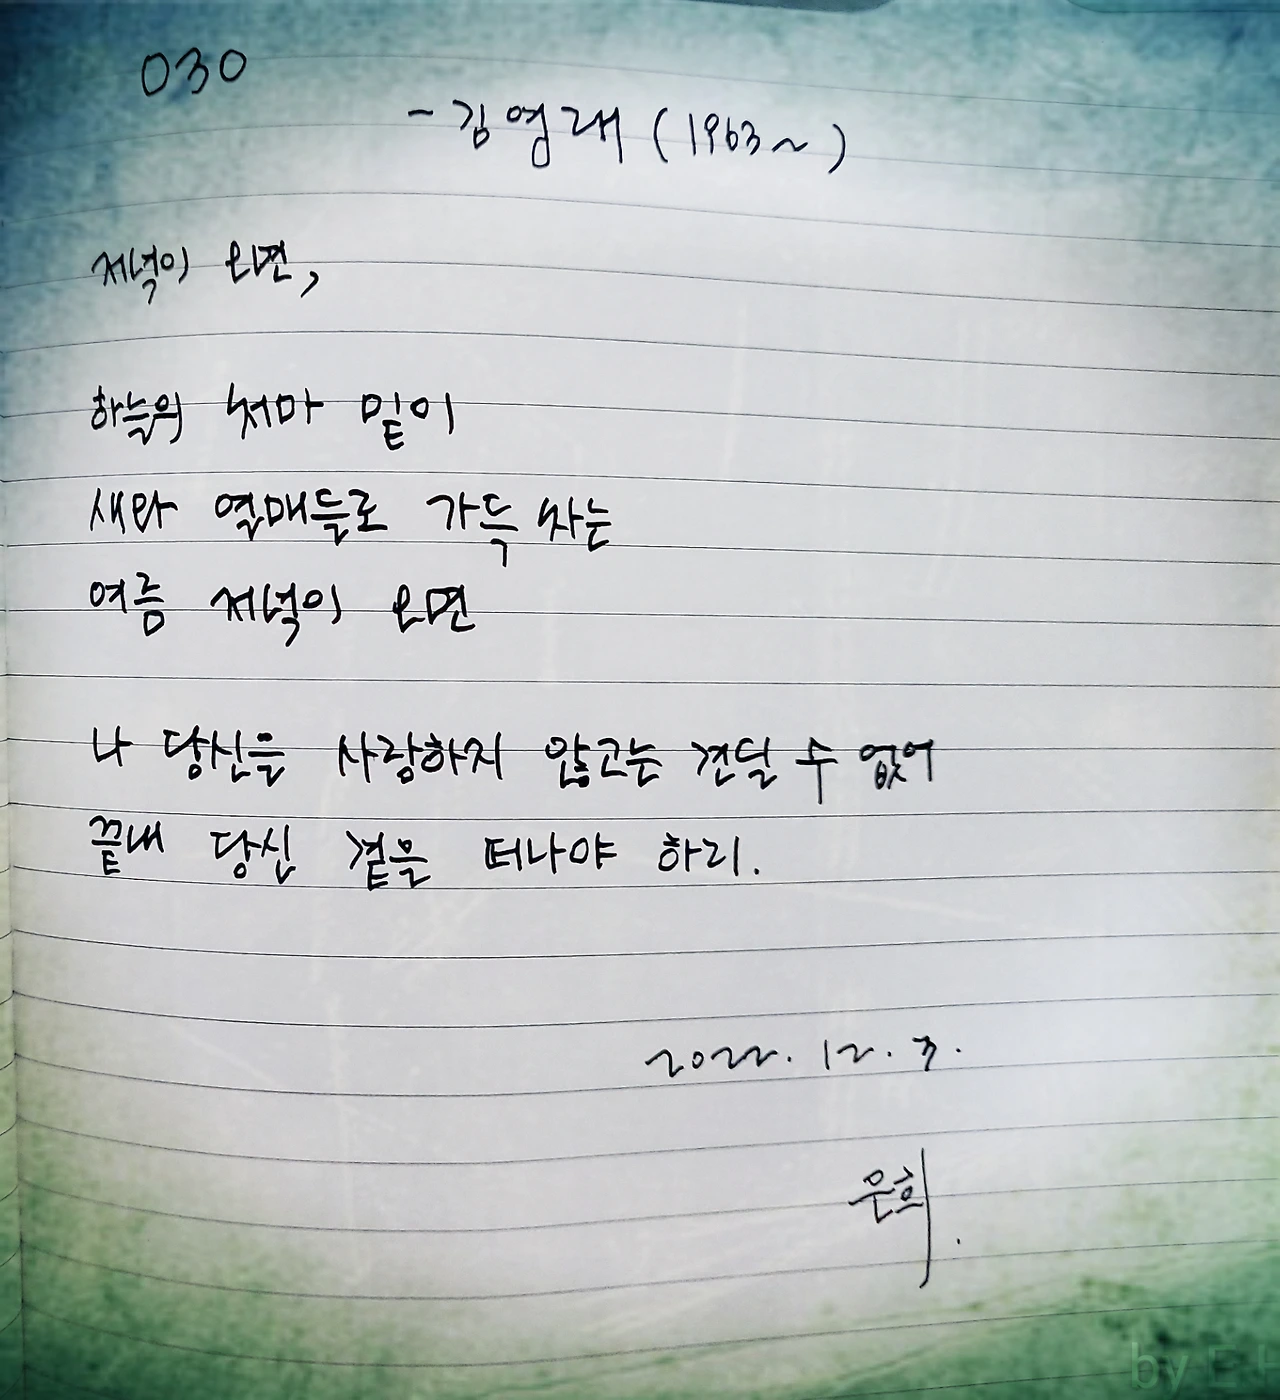 030
- 김영래 (1963~)
저녁이 오면,
하늘의 처마 밑이
새와 열매들로 가득 차는
여름 저녁이 오면
나 당신을 사랑하지 않고는 견딜 수 없어
끝내 당신 곁을 떠나야 하리.
2022. 12. 3.
은희.
by E H